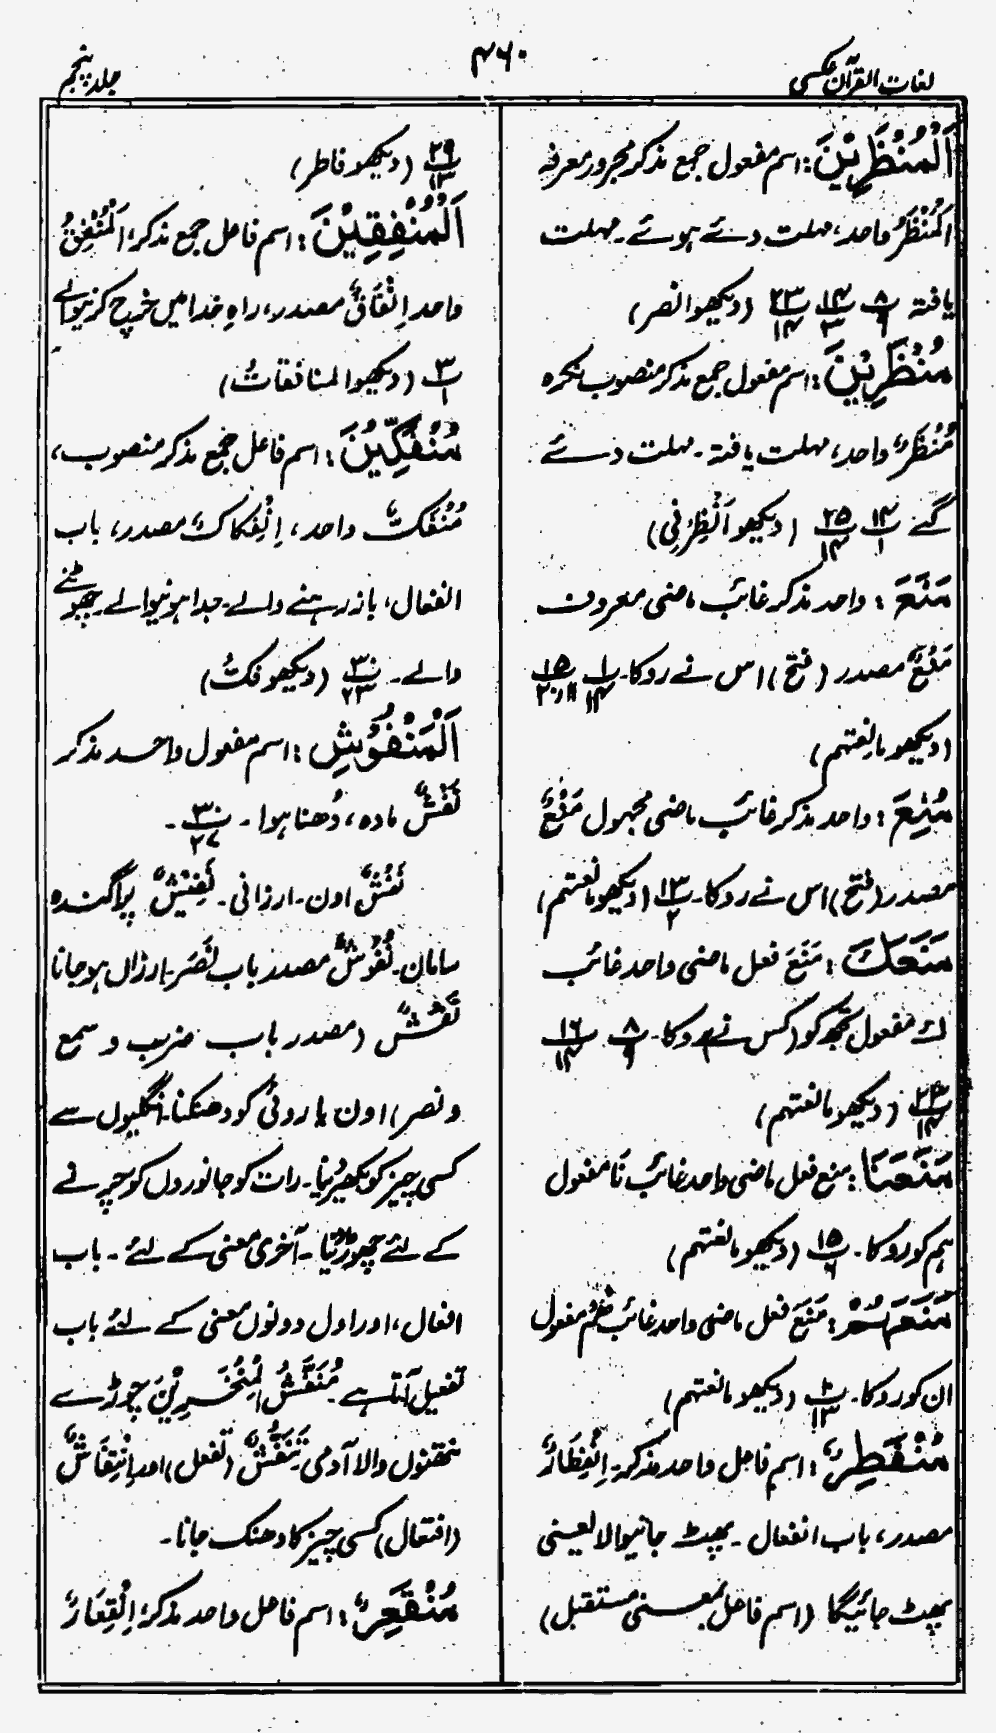 لغات القرآن عکسی
۴۶۰
جلد پنجم
اَلْمُنْظَرِیْنَ : اسم مفعول جمع مذکر مجرور معرفہ
اَلْمُنْظَرُ واحد، مہلت دئے ہوئے۔ مہلت
یافتہ ۸/۹ ۱۴/۳ ۲۳/۱۴ (دیکھو انصر)
مُنْظَرِیْنَ : اسم مفعول جمع مذکر منصوب نکرہ
مُنْظَرٌ واحد، مہلت یافتہ۔ مہلت دئے
گئے ۱۴/۱ ۲۵/۱۴ (دیکھو اَنْظِرْنِی)
مَنَعَ : واحد مذکر غائب ماضی معروف
مَنْعٌ مصدر (فتح) اس نے روکا۔ ۱/۱۴ ۱۵/۱۱،۲۰
(دیکھو مانعتہم)
مُنِعَ : واحد مذکر غائب ماضی مجہول مَنْعٌ
مصدر (فتح) اس نے روکا۔ ۱۳/۲ (دیکھو مانعتہم)
مَنَعَكَ : مَنَعَ فعل ماضی واحد غائب
ک مفعول تجھ کو (کس نے) روکا۔ ۸/۹ ۱۶/۱۴
۲۳/۱۴ (دیکھو مانعتہم)
مَنَعَنَا : منع فعل ماضی واحد غائب نَا مفعول
ہم کو روکا۔ ۱۵/۶ (دیکھو مانعتہم)
مَنَعَهُمْ : مَنَعَ فعل ماضی واحد غائب هُمْ مفعول
ان کو روکا۔ /۱۳ (دیکھو مانعتہم)
مُنْفَطِرٌ : اسم فاعل واحد مذکر۔ اِنْفِطَارٌ
مصدر، باب انفعال۔ پھٹ جانیوالا یعنی
پھٹ جائیگا (اسم فاعل بمعنی مستقبل)
۲۹/۱۳ (دیکھو فاطر)
اَلْمُنْفِقِیْنَ : اسم فاعل جمع مذکر، اَلْمُنْفِقُ
واحد اِنْفَاقٌ مصدر، راہِ خدا میں خرچ کرنیوالے
۳/۱ (دیکھو المنافقاتُ)
مُنْفَكِّیْنَ : اسم فاعل جمع مذکر منصوب،
مُنْفَكٌّ واحد، اِنْفِكَاكٌ مصدر، باب
انفعال، باز رہنے والے۔ جدا ہونیوالے۔ چھوٹنے
والے۔ ۳۰/۲۳ (دیکھو فَكُّ)
اَلْمَنْفُوْشِ : اسم مفعول واحد مذکر
نَفْشٌ مادہ، دُھنا ہوا۔ ۳۰/۲۷۔
نَفْشٌ اون۔ ارزانی۔ نَفِیْشٌ پراگندہ
سامان۔ نُفُوْشٌ مصدر باب نَصَرَ۔ ارزاں ہو جانا
نَفْشٌ (مصدر باب ضرب و سمع
و نصر) اون یا روئی کو دھنکنا۔ انگلیوں سے
کسی چیز کو بکھیر دینا۔ رات کو جانوروں کو چرنے
کے لئے چھوڑ دینا۔ آخری معنی کے لئے۔ باب
افعال، اور اول دونوں معنی کے لئے باب
تفعیل آتا ہے۔ مُنَفَّشُ الْمِنْخَرِیْنِ چوڑے سے
نتھنوں والا آدمی تَنَفُّشٌ (تفعل) اور اِنْتِفَاشٌ
(افتعال) کسی چیز کا دھنک جانا۔
مُنْقَعِرٌ : اسم فاعل واحد مذکر، اِنْقِعَارٌ